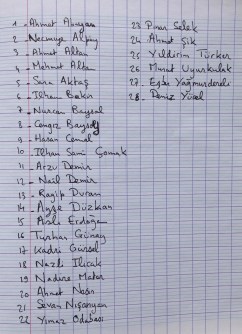 1 - Ahmet Abakay
2 - Necmiye Alpay
3 - Ahmet Altan
4 - Mehmet Altan
5 - Sara Aktaş
6 - İlhan
7 - Nurcan Baysal
8 - Cengiz Baysoy
9 - Hasan Cemal
10 - İlhan Sami Çomak
11 - Arzu Demir
12 - Nail Demir
13 - Ragıp Duran
14 - Ayşe Düzkan
15 - Aslı Erdoğan
16 Turhan Günay
17 Kadri Gürsel
18 Nazlı Ilıcak
19 Nadire Mater
20 Ahmet Nesin
21 Sevan Nışanyan
22 Yılmaz Odabaşı
23 Pınar Selek
24 Ahmet Şık
25 Yıldırım Türker
26 Murat Uyurkulak
27. Eşber Yağmurdereli
28. Deniz Yücel